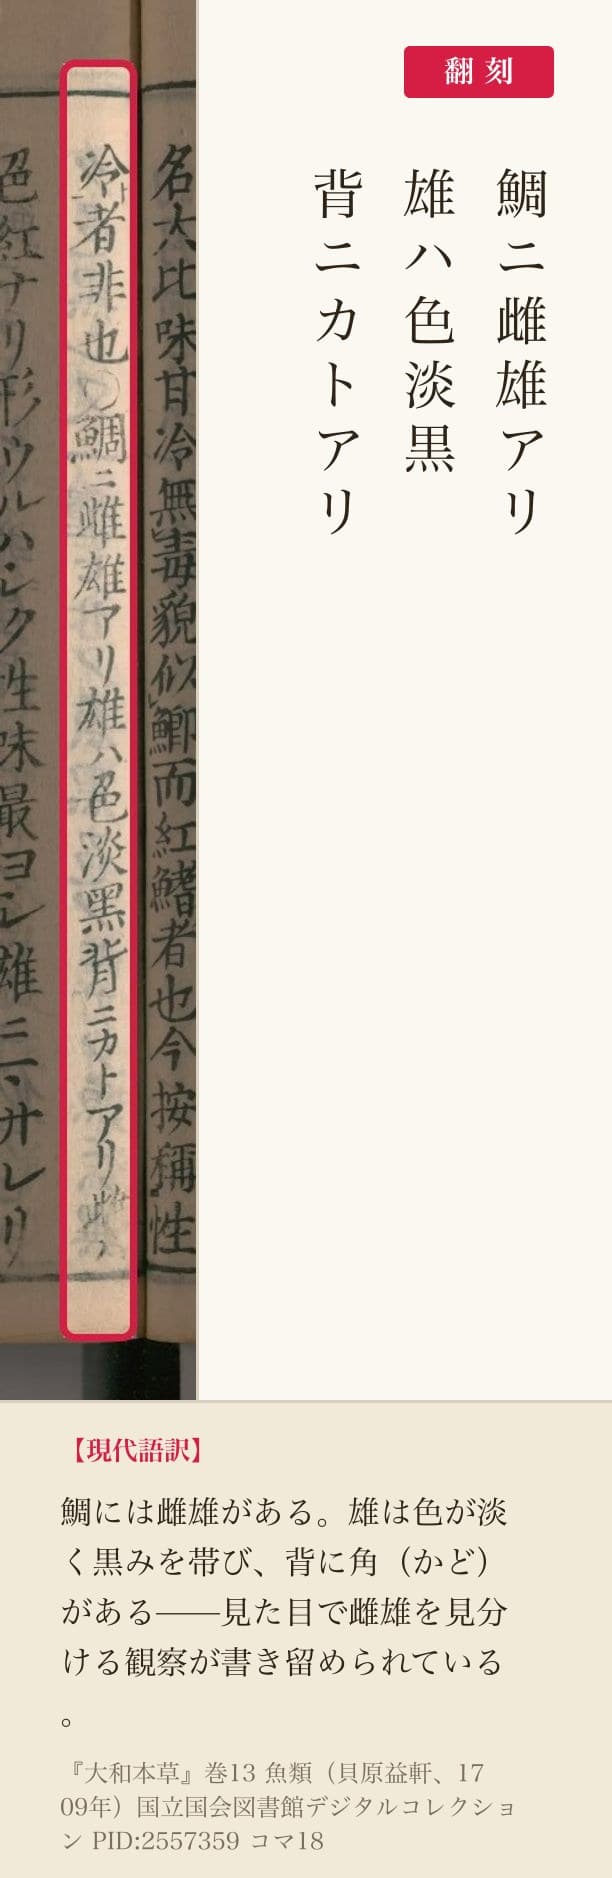 名大比味甘冷無毒貌似鯽而紅鰭者也今按稱性
冷者非也○鯛ニ雌雄アリ雄ハ色淡黒背ニカトアリ雌ハ
色紅ナリ形ウルハシク性味最ヨシ雄ニハサレリ
翻刻
鯛ニ雌雄アリ
雄ハ色淡黒
背ニカトアリ
【現代語訳】
鯛には雌雄がある。雄は色が淡
く黒みを帯び、背に角（かど）
がある——見た目で雌雄を見分
ける観察が書き留められている
。
『大和本草』巻13 魚類（貝原益軒、17
09年）国立国会図書館デジタルコレクショ
ン PID:2557359 コマ18